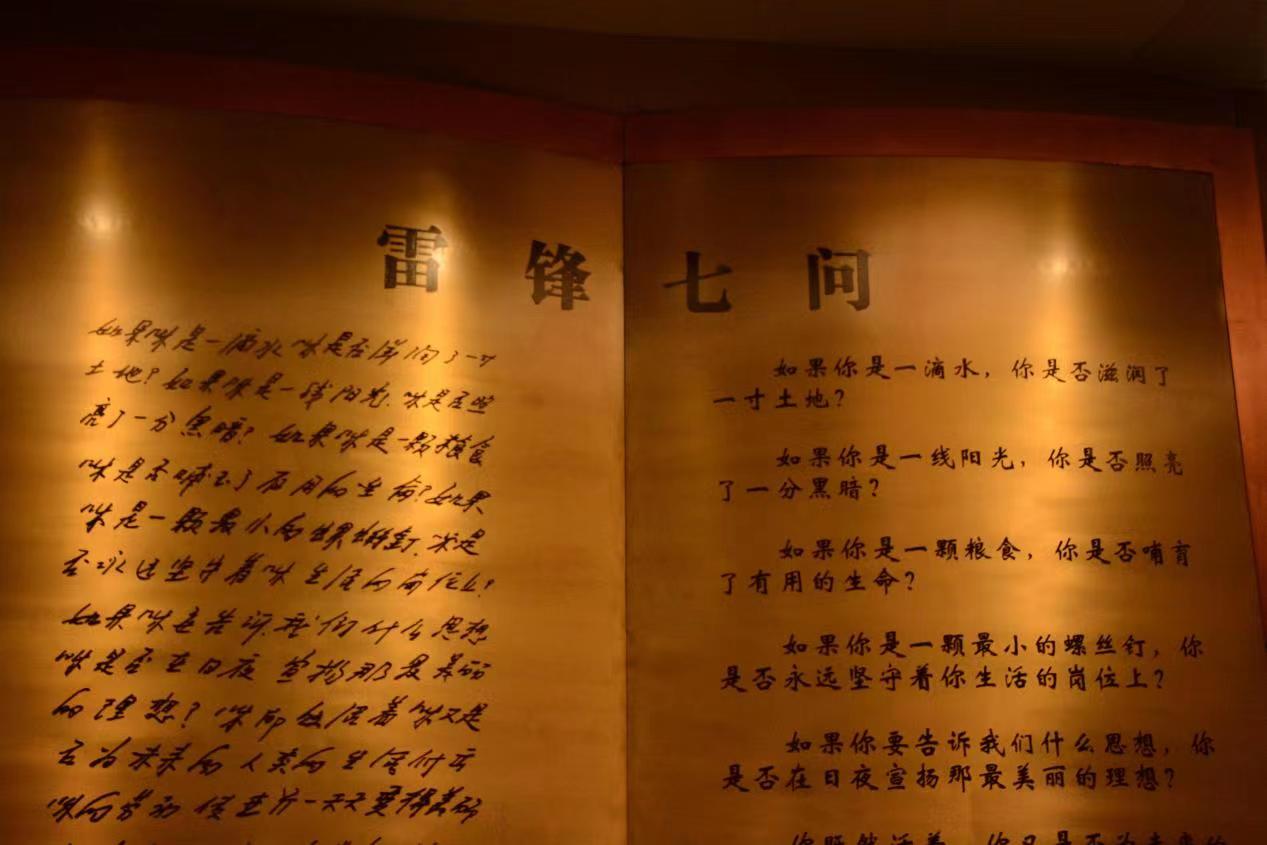 雷锋七问
如果你是一滴水 你是否滋润了一寸
土地？如果你是一线阳光，你是否照
亮了一分黑暗？如果你是一颗粮食
你是否哺育了有用的生命？如果
你是一颗最小的螺丝钉，你是
否永远坚守着你生活的岗位上？
如果你要告诉我们什么思想
你是否在日夜宣扬那最美丽
的理想？你既然活着你又是
否为未来的人类的生活付出
你的劳动 使世界一天天变得美丽
如果你是一滴水，你是否滋润了
一寸土地？
如果你是一线阳光，你是否照亮
了一分黑暗？
如果你是一颗粮食，你是否哺育
了有用的生命？
如果你是一颗最小的螺丝钉，你
是否永远坚守着你生活的岗位上？
如果你要告诉我们什么思想，你
是否在日夜宣扬那最美丽的理想？
你既然活着，你又是否为未来的